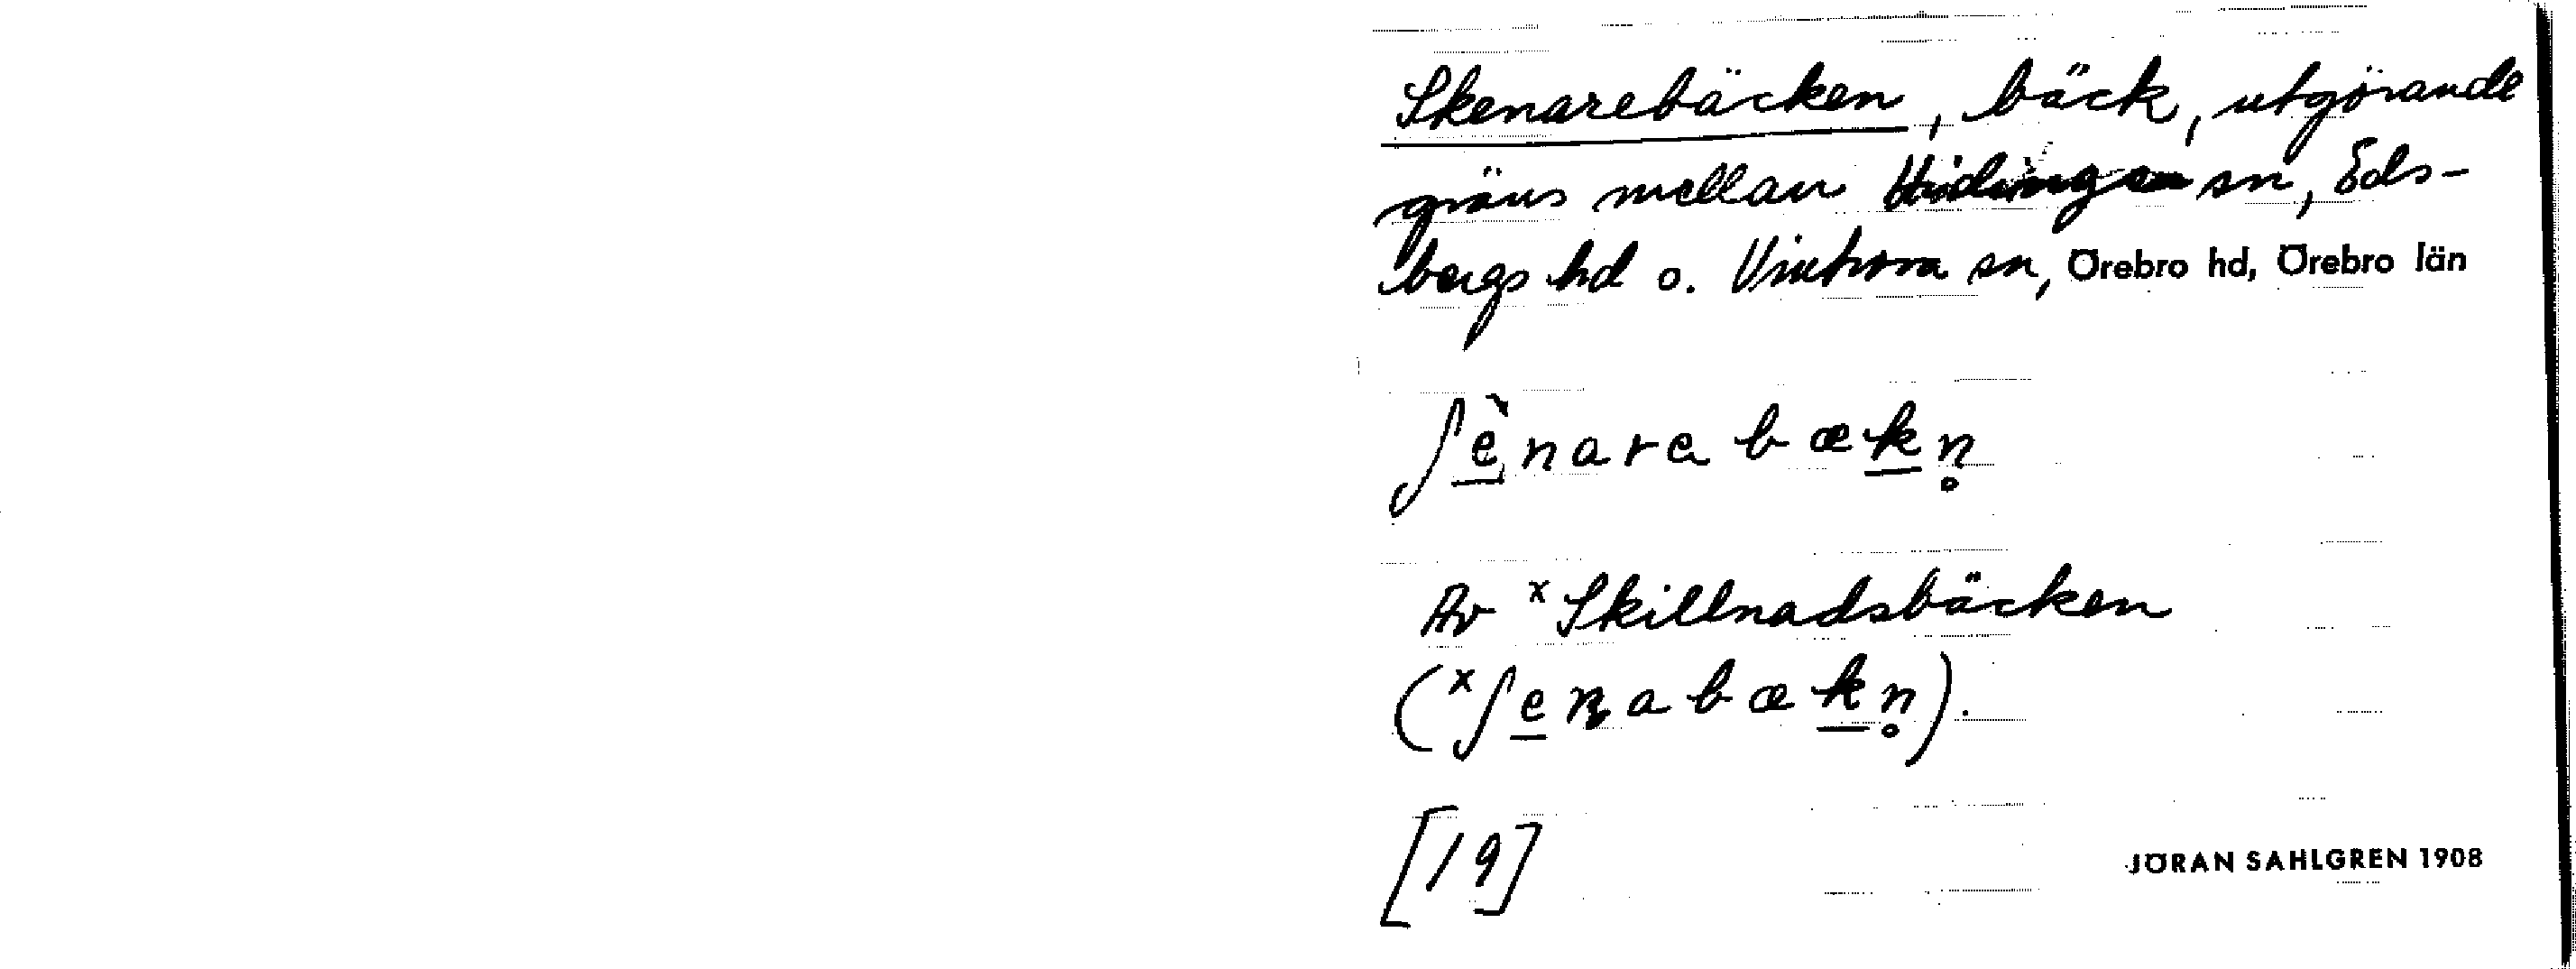 Skenarebäcken, bäck, utgörande
gräns mellan Hidinge sn, Eds-
bergs hd o. Vintrosa sn, Örebro hd, Örebro län
ʃènarabækn̥
Av ˣSkillnadsbäcken
(ˣʃenabækn̥).
[19]
JÖRAN SAHLGREN 1908